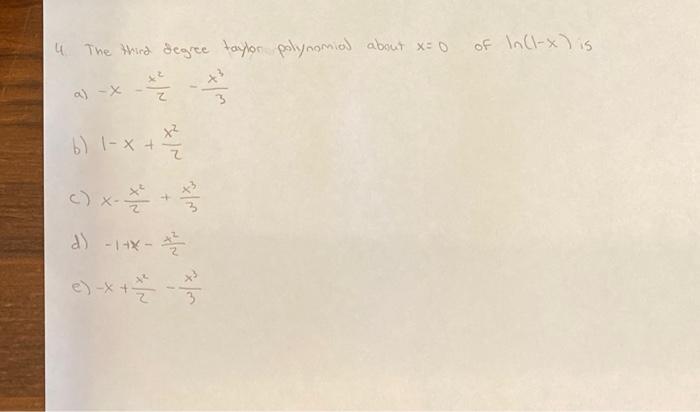 4. The third degree taylor polynomial about x=0 of ln(1-x) is
a) -x - x²/2 - x³/3
b) 1-x + x²/2
c) x - x²/2 + x³/3
d) -1+x - x²/2
e) -x + x²/2 - x³/3